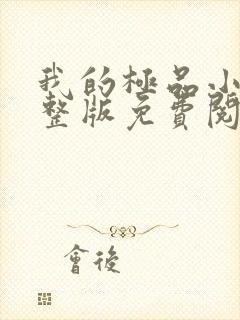 我的極品小
整版免費閱
會後